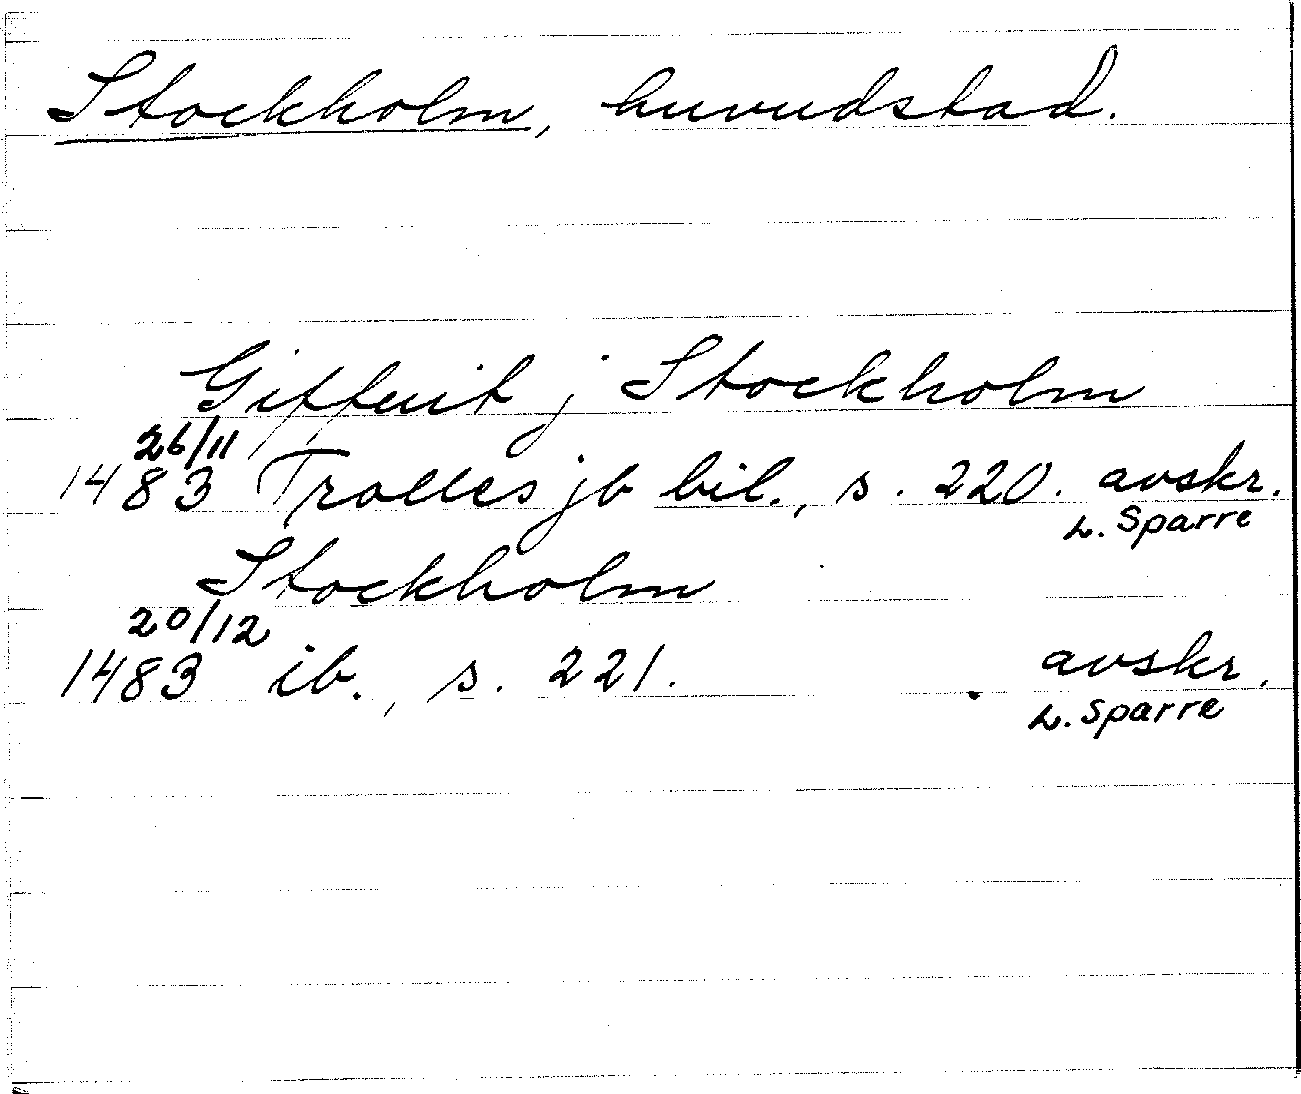 Stockholm, huvudstad.
Giffuit j Stockholm
26/11
1483 Trolles jb bil., s. 220. avskr.
L. Sparre
Stockholm
20/12
1483 ib., s. 221. avskr.
L. Sparre